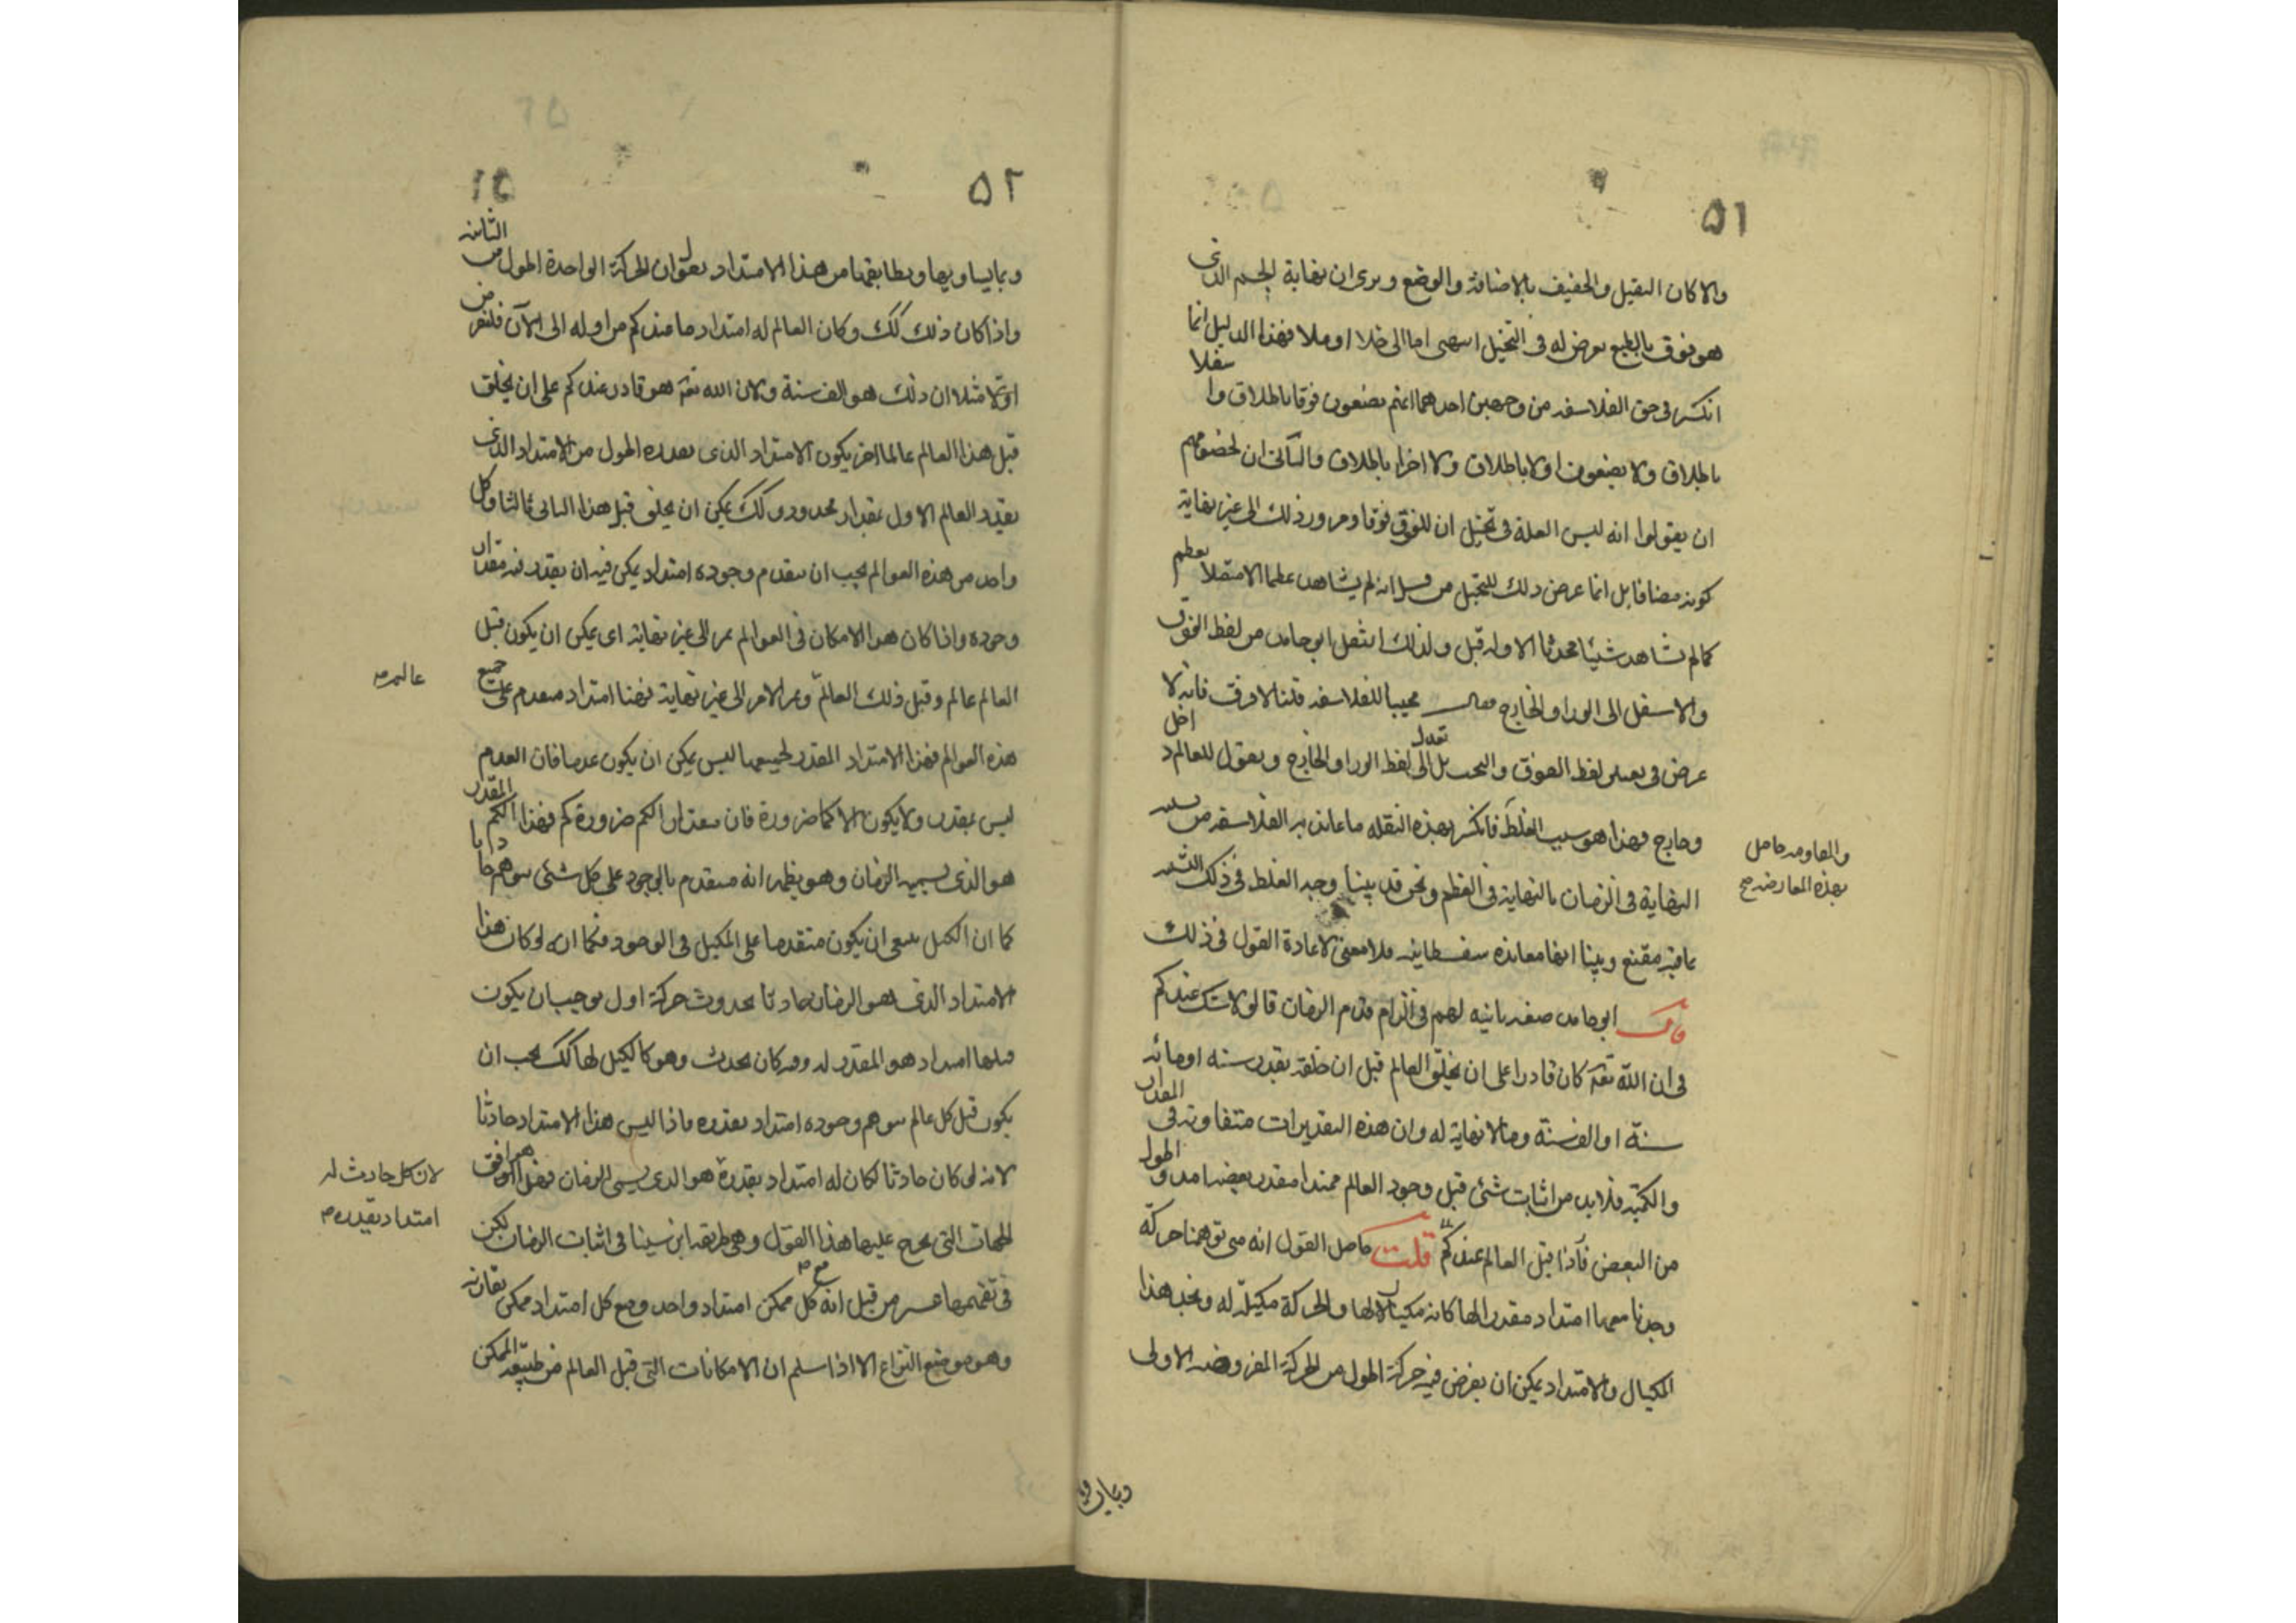 ٥١
والا كان الثقيل والخفيف بالاضافة والوضع ويرى ان نهاية الجسم الذى
هو فوق بالطبع يعرض له فى التخيل اما الى خلا او ملا فهذا الدليل انما
انكسر فى حق الفلاسفه من وجهين احدهما انهم يضعون فوقا باطلاق و سفلا
باطلاق ولا يضعون اولا باطلاق ولا اخرا باطلاق والثانى ان لخصومهم
ان يقولوا انه ليس العلة فى تخيل ان للفوق فوقا ومرور ذلك الى غير نهاية
كونه مضافا بل انما عرض ذلك للتخيل من قبل انه لم يشاهد عظما الا متصلا بعظم
كما لم يشاهد شيئا محدثا الا وله قبل ولذلك انتقل ابو حامد من لفظ الفوق
والاسفل الى الورا والخارج فقال مجيبا للفلاسفه قلنا لا فرق فانه لا
عرض فى لفظ الفوق والتحت بل نعدل الى لفظ الورا والخارج ونقول للعالم داخل
وخارج فهذا هو سبب الغلط فانكسر بهذه النقله ما عاند به الفلاسفه من تشبيه
النهاية فى الزمان بالنهاية فى العظم ونحن قد بينا وجه الغلط فى ذلك التشبيه
بما فيه مقنع وبينا انها معانده سفسطاييه فلا معنى لاعادة القول فى ذلك
قال ابو حامد صفه ثانيه لهم فى الزام قدم الزمان قالوا لا شك عندكم
فى ان الله تعه كان قادرا على ان يخلق العالم قبل ان خلقه بقدر سنه او مائه
سنة او الف سنة وما لا نهاية له وان هذه التقديرات متفاوته فى المقدار
والكمية فلا بد من اثبات شئ قبل وجود العالم ممتدا مقدر بعضه امد واطول
من البعض فاذا قبل العالم عندكم قلت حاصل القول انه متى توهمنا حركة
وجدنا معها امتداد مقدرا لها كانه مكيالا لها والحركة مكيلة له ونجد هذا
المكيال والامتداد يمكن ان يفرض فيه حركة اطول من الحركة المفروضه الاولى
والمعاومه حاصل
بهذه المعارضه صح
٥٢
وبما يساويها ويطابقها من هذا الامتداد نقول ان الحركة الواحدة اطول من الثانيه
واذا كان ذلك كك وكان العالم له امتداد ما عندكم من اوله الى الآن فلنفرض
اولا مثلا ان ذلك هو الف سنة ولان الله تعه هو قادر عندكم على ان يخلق
قبل هذا العالم عالما اخر يكون الامتداد الذى يقدره اطول من الامتداد الذى
يقدر العالم الاول بمقدار محدود وكك يمكن ان يخلق قبل هذا الثانى ثالثا وكل
واحد من هذه العوالم يجب ان يتقدم وجوده امتداد يمكن فيه ان يقدر فيه مقدار
وجوده واذا كان هذا الامكان فى العوالم يمر الى غير نهاية اى يمكن ان يكون قبل
العالم عالم وقبل ذلك العالم ويمر الامر الى غير نهاية فهنا امتداد متقدم على جميع
هذه العوالم فهذا الامتداد المقدر لجميعها ليس يمكن ان يكون عدما فان العدم
ليس بمقدر ولا يكون الا كما ضرورة فان مقدار الكم ضرورة كم فهذا الكم المقدر
هو الذى نسميه الزمان وهو يظهر انه متقدم بالوجود على كل شئ يتوهم حادثا
كما ان الكيل ينبغى ان يكون متقدما على المكيل فى الوجود فكما انه لو كان هذا
الامتداد الذى هو الزمان حادثا بحدوث حركة اول لوجب ان يكون
قبلها امتداد هو المقدر له وفيه كان يحدث وهو كالكيل لها كك يجب ان
يكون قبل كل عالم يتوهم وجوده امتداد يقدره فاذا ليس هذا الامتداد حادثا
لانه لو كان حادثا لكان له امتداد يقدره هو الذى يسمى الزمان فهذا هو اوفق
الجهات التى يخرج عليها هذا القول وهى طريقة ابن سينا فى اثبات الزمان لكن
فى تفهيمها عسر من قبل انه مع كل ممكن امتداد واحد ومع كل امتداد ممكن يقارنه
وهو موضع النزاع الا اذا سلم ان الامكانات التى قبل العالم من طبيعة الممكن
عالم صح
لان كل حادث له
امتداد يقدره صح